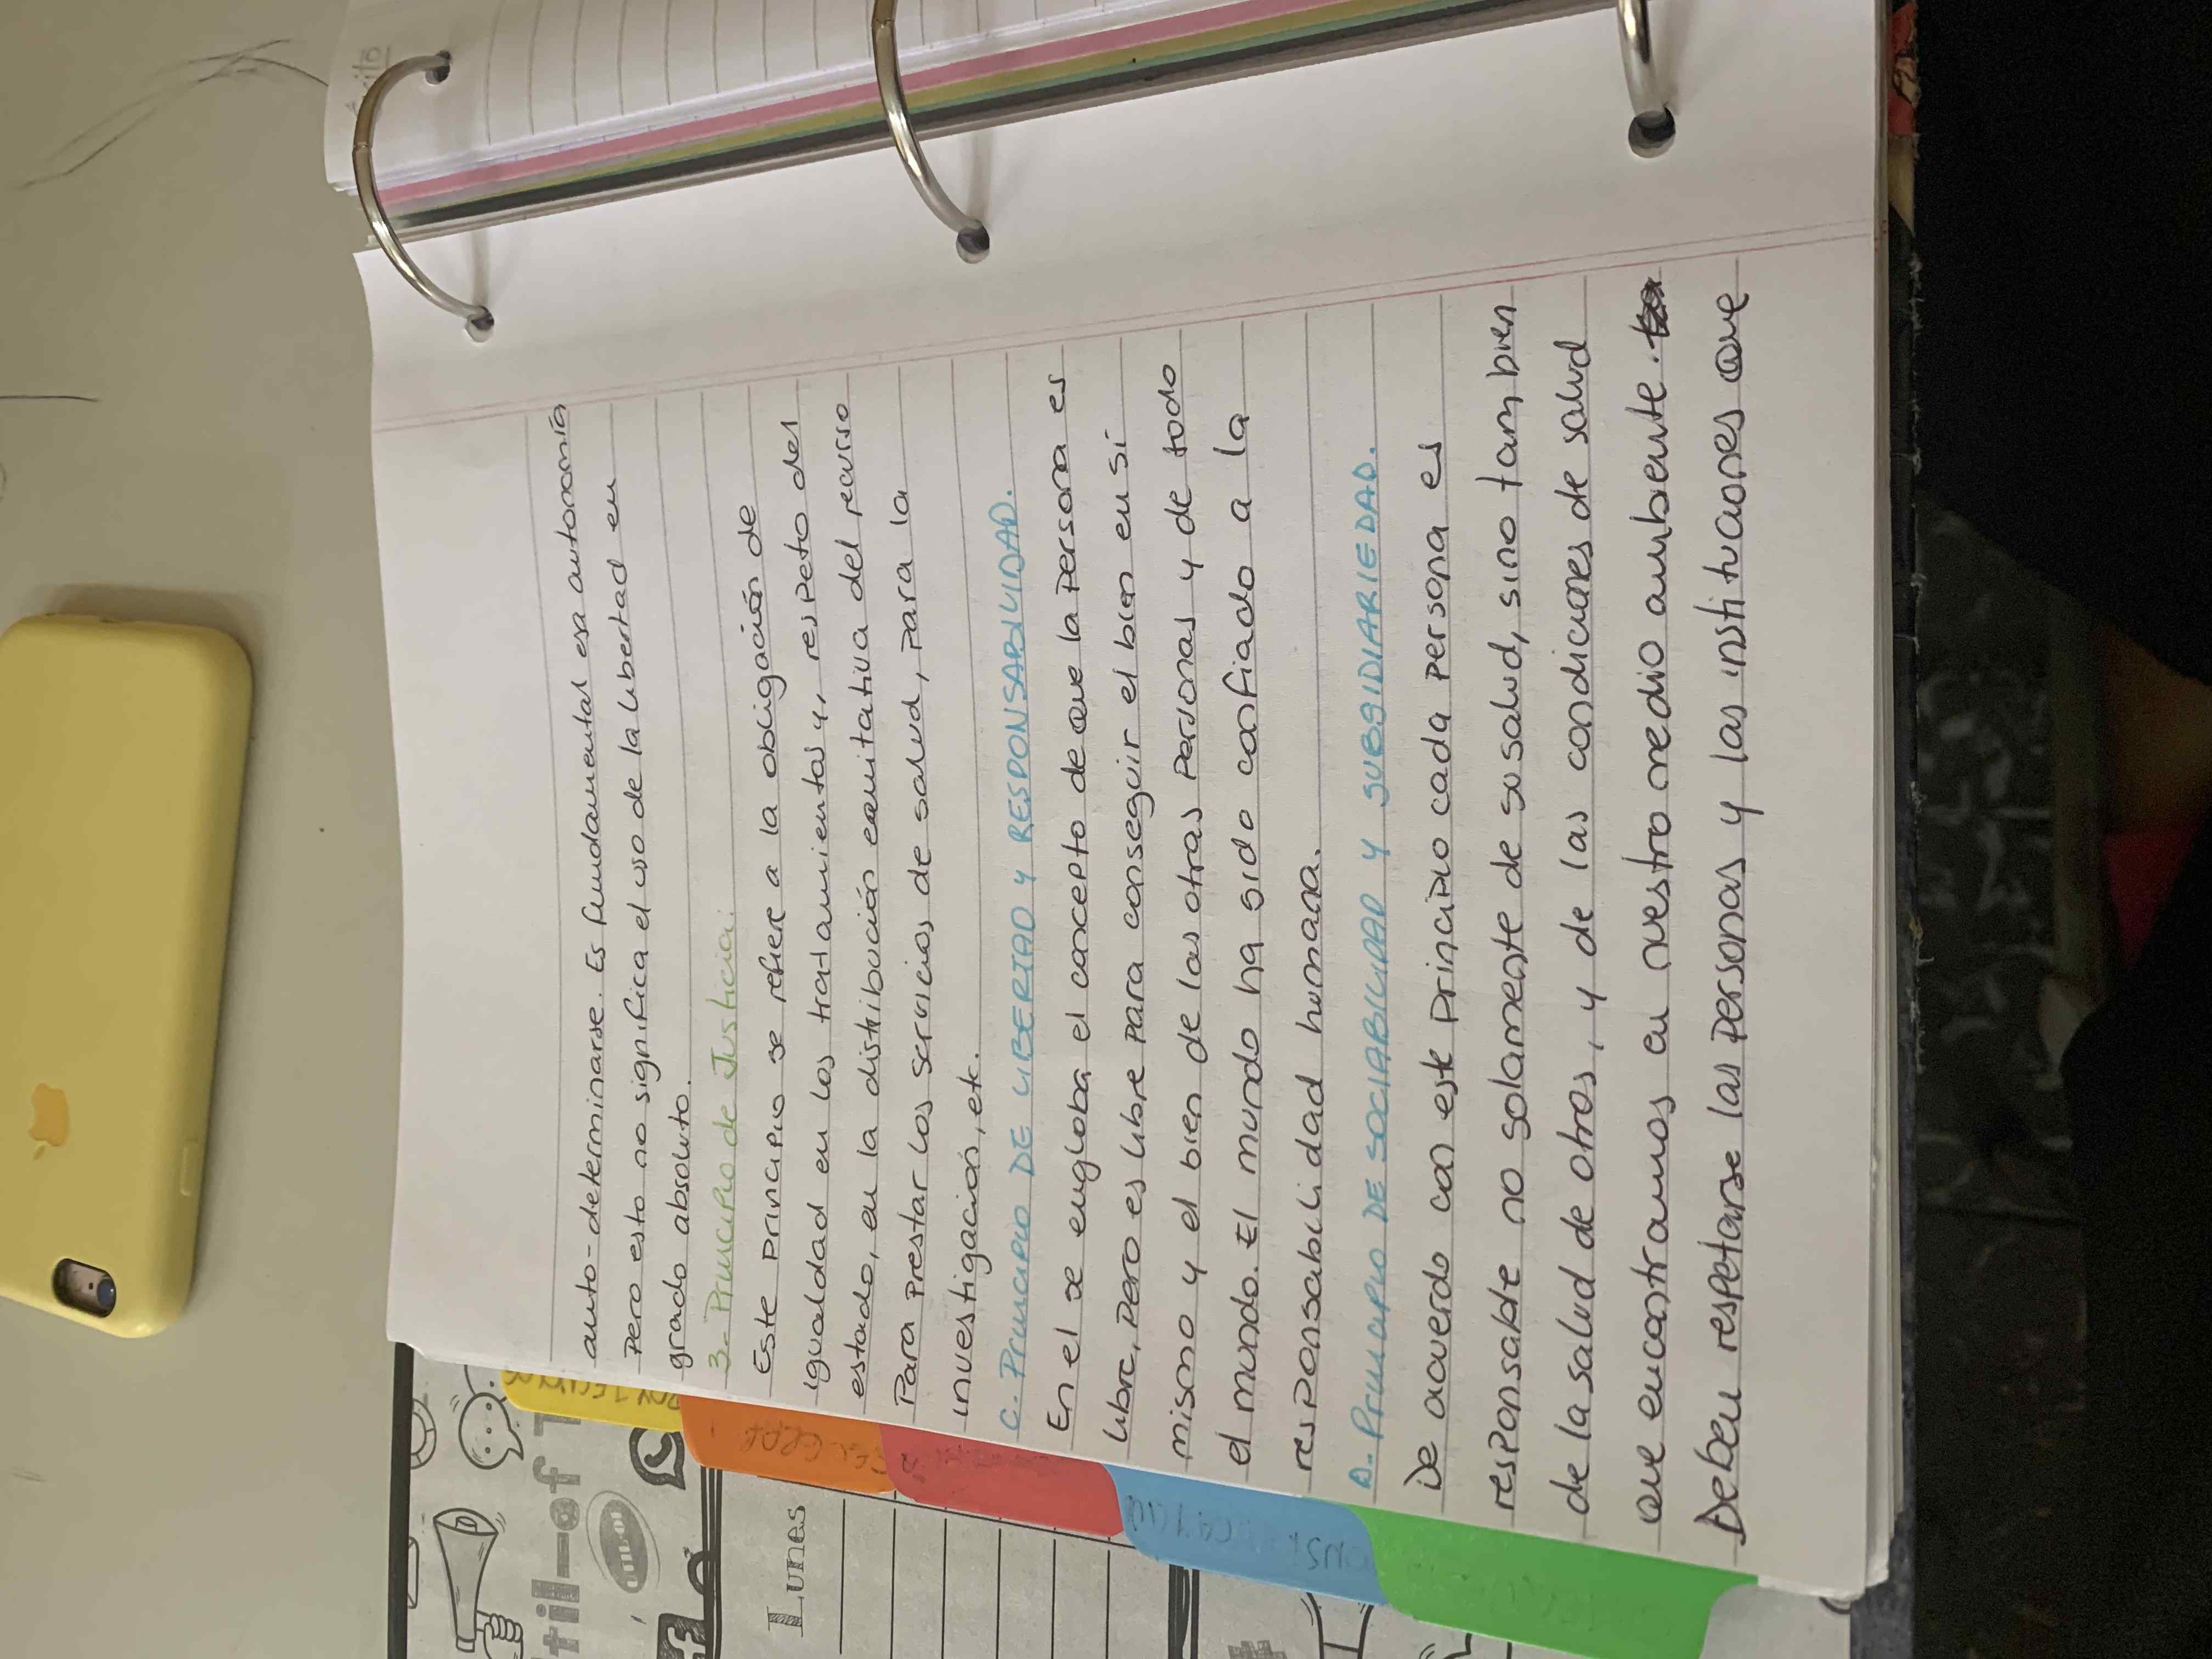 auto-determinarse. Es fundamental esa autonomía
Pero esto no significa el uso de la libertad en
grado absoluto.
3- Principio de Justicia:
Este principio se refiere a la obligación de
igualdad en los tratamientos y, respeto del
estado, en la distribución equitativa del recurso
Para prestar los servicios de salud, para la
investigación, etc.
C- Principio DE LIBERTAD Y RESPONSABILIDAD.
En el se engloba el concepto de que la persona es
libre, pero es libre para conseguir el bien en sí
mismo y el bien de las otras personas y de todo
el mundo. El mundo ha sido confiado a la
responsabilidad humana.
D- Principio DE SOCIABILIDAD Y SUBSIDIARIEDAD.
De acuerdo con este principio cada persona es
responsable no solamente de su salud, sino tambien
de la salud de otros, y de las condiciones de salud
que encontramos en nuestro medio ambiente.
Deben respetarse las personas y las instituciones que
Lunes